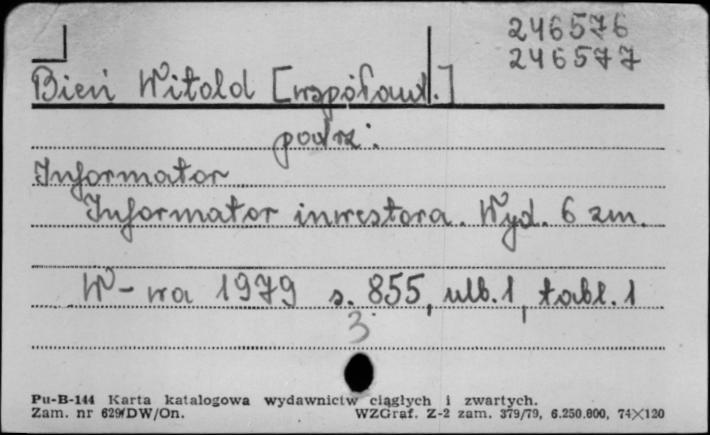 246576
246577
Bień Witold [współaut.]
podrz.
Informator
Informator inwestora. Wyd. 6 zm.
W-wa 1979 s. 855, ulb. 1, tabl. 1
3
Pu-B-144 Karta katalogowa wydawnictw ciągłych i zwartych.
Zam. nr 629/DW/On. WZGraf. Z-2 zam. 379/79, 6.250.000, 74×120